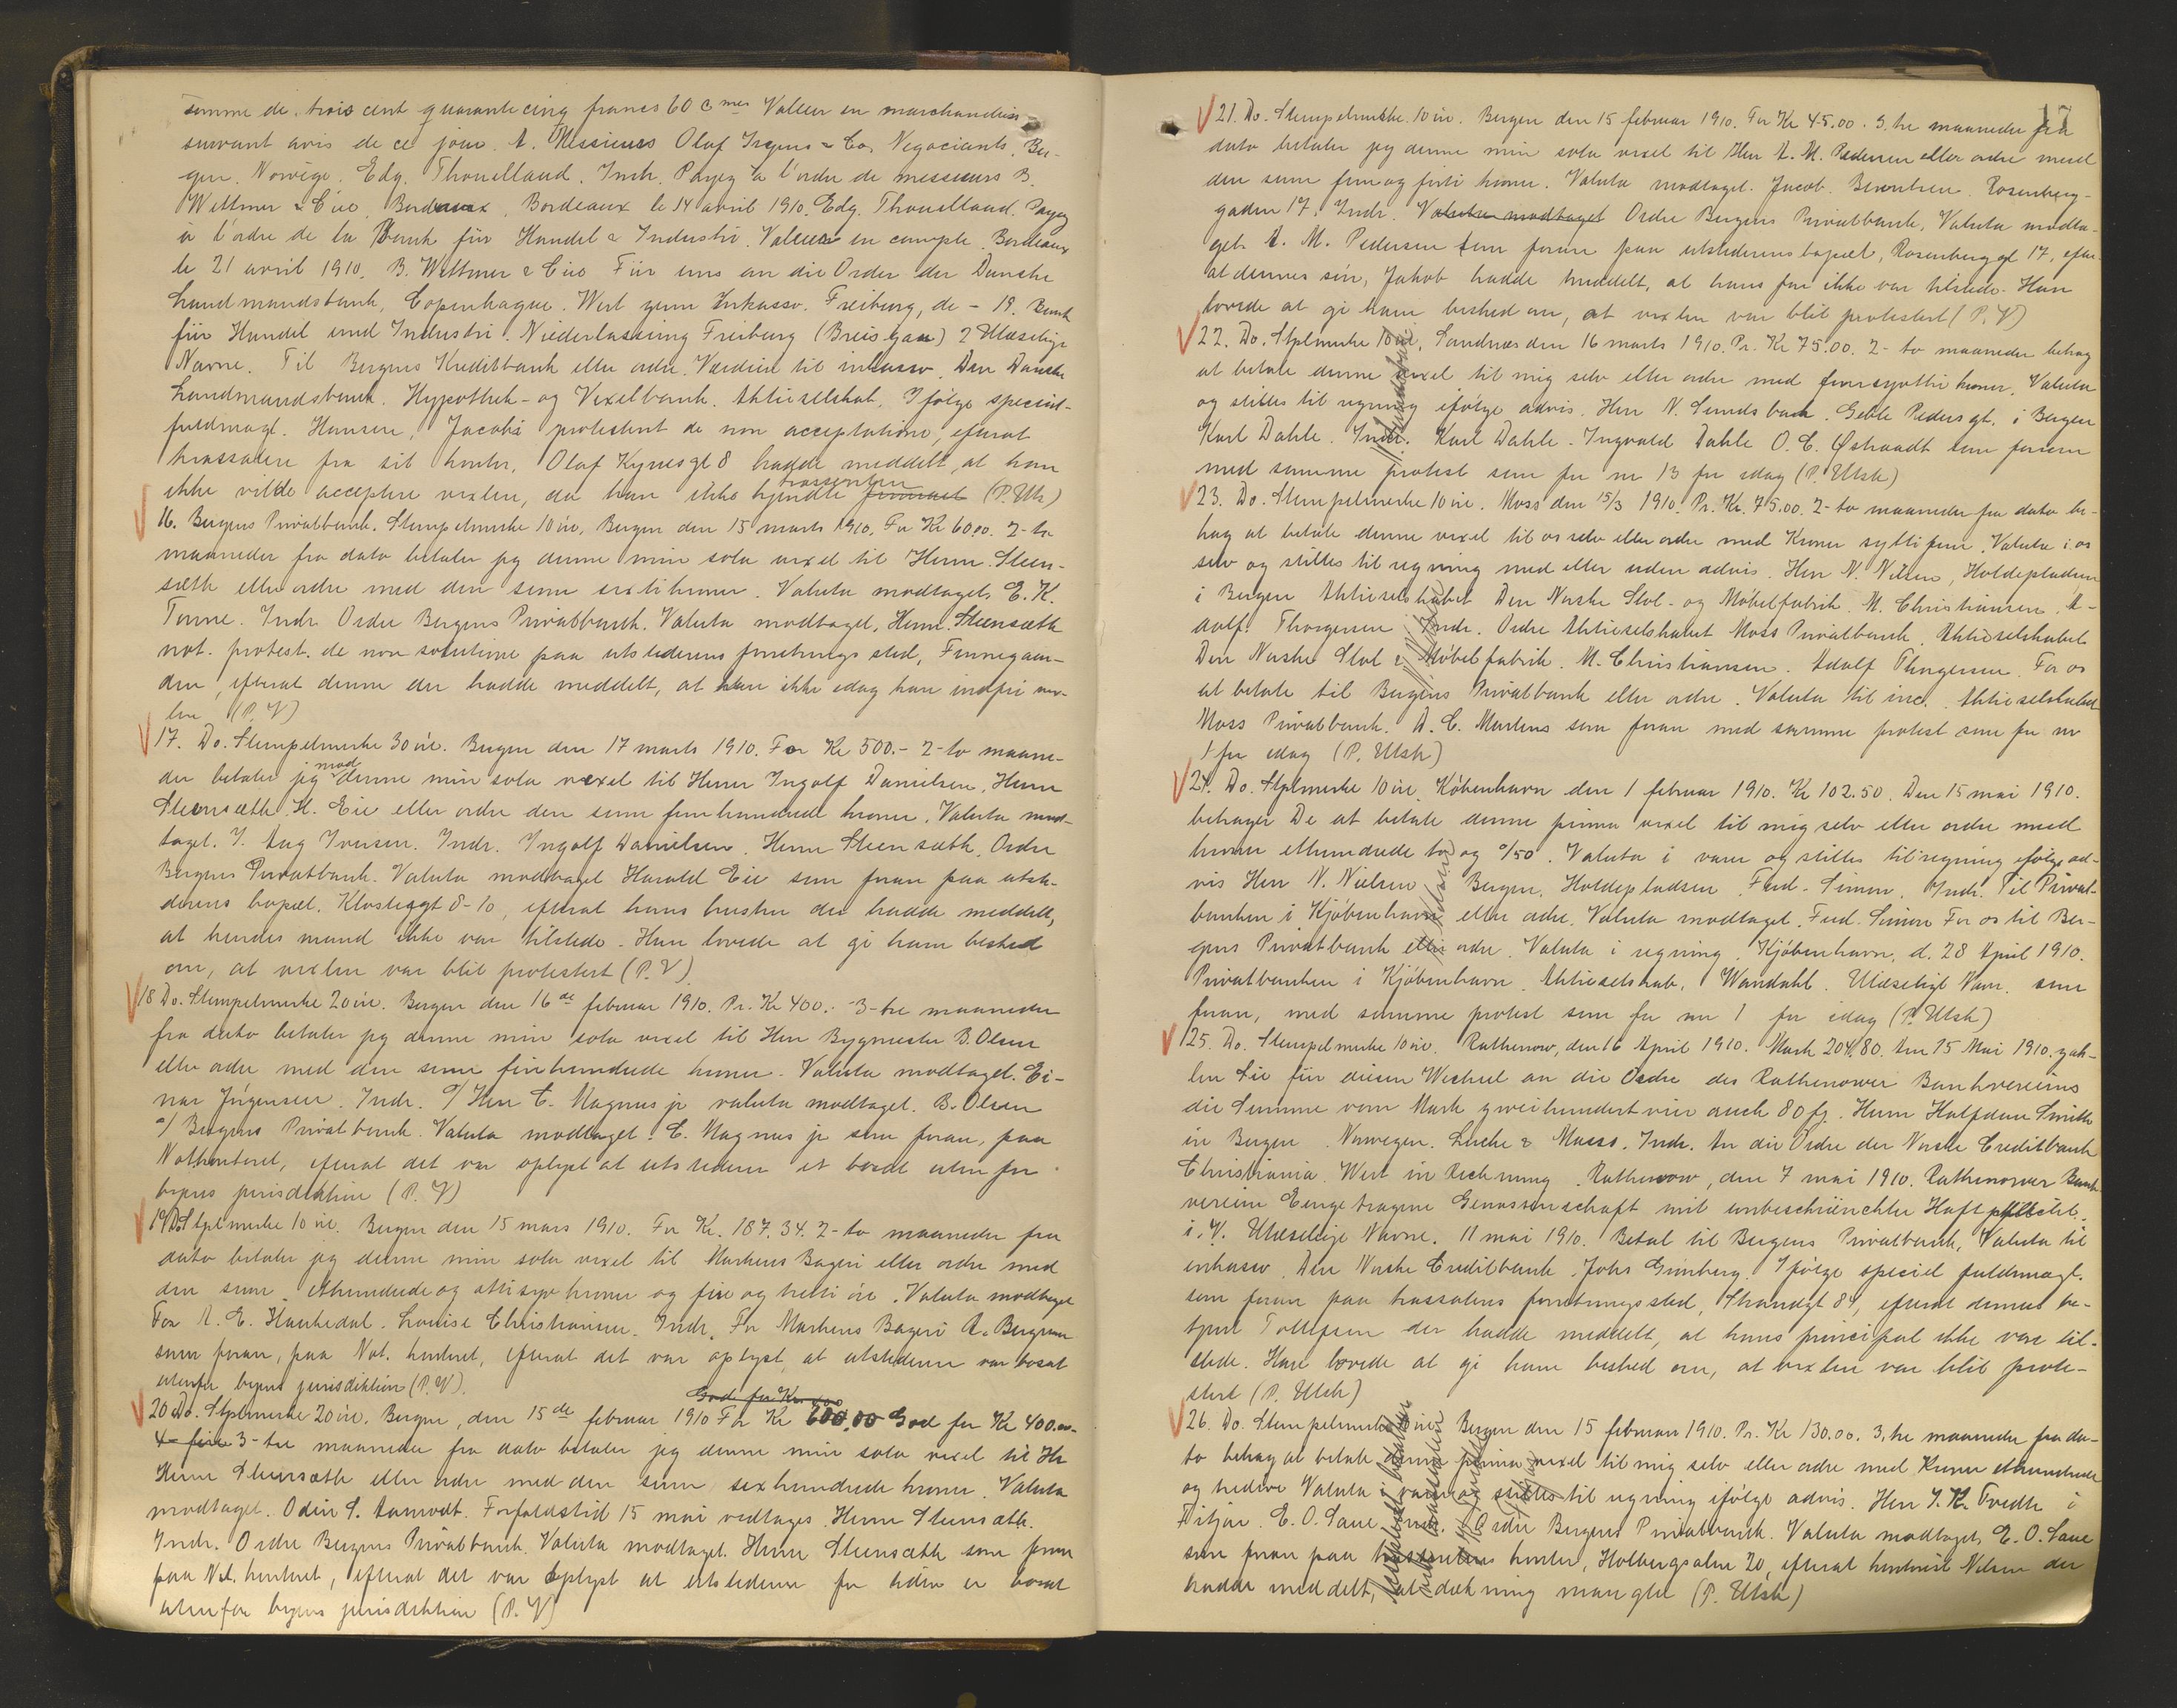 somme de trois cent quarante cinq francs 60 cmes Valeur en marchandises
suivant avis de ce jour. A. Messieurs Olaf Irgens & Co, Negociants, Ber-
gen. Norvège. Edg. Thouelland. Indr. Payez à l'ordre de messieurs B.
Wettmer & Cie, Bordeaux, Bordeaux le 14 avril 1910. Edg. Thouelland. Payez
à l'ordre de la Bank für Handel & Industri. Valeur en compte. Bordeaux
le 21 avril 1910. B. Wettmer & Cie Für uns an die Order der Danske
Landmandsbank, Copenhague. Wert zum Inkasso. Freiburg, de - 19. Bank
für Handel und Industri. Niederlassung Freiburg (Breisgau) 2 Ulæselige
Navne. Til Bergens Kreditbank eller ordre. Værdien til inkasso. Den Danske
Landmandsbank. Hypothek- og Vexelbank. Aktieselskab. Ifølge special-
fuldmagt. Hansen, Jacobi protestert de non acceptatione, efterat
trassaten fra sit kontor, Olaf Kyrresgt 8 hadde meddelt, at han
ikke vilde acceptere vexlen, da han ikke kjendte trassenten (P. Uts)
16. Bergens Privatbank. Stempelmerke 10 øre, Bergen den 15 marts 1910. For Kr 60.00. 2- to
maaneder fra dato betaler jeg denne min sola vexel til Herm. Steen-
sæth eller ordre med den sum sexti kroner. Valuta modtaget. E. K.
Tonne. Indr. Ordre Bergens Privatbank. Valuta modtaget, Herm. Steensæth
not. protest. de non solutione paa utstederens forretningssted, Finnegaar-
den, efterat denne der hadde meddelt, at han ikke idag kan indfri vex-
len (P. V)
17. Do. Stempelmerke 30 øre. Bergen den 17 marts 1910. For Kr 500.- 2- to maane-
der betaler jeg mod denne min sola vexel til Herrer Ingolf Danielsen, Herm
Steensæth. H. Eie eller ordre den sum femhundrede kroner. Valuta mod-
taget. J. Aug Iversen. Indr. Ingolf Danielsen. Herm Steensæth, Ordre
Bergens Privatbank. Valuta modtaget Harald Eie som foran paa utste-
derens bopæl. Klostergt 8-10, efterat hans hustru der hadde meddelt,
at hendes mand ikke var tilstede. Hun lovede at gi ham besked
om, at vexlen var blit protestert (P. V)
18 Do. Stempelmerke 20 øre. Bergen den 16de februar 1910. Pr. Kr 400.- 3- tre maaneder
fra dato betaler jeg denne min sola vexel til Herr Bygmester B. Olsen
eller ordre med den sum firehundrede kroner. Valuta modtaget. Ei-
nar Jørgensen. Indr. o/ Herr C. Magnus jr valuta modtaget. B. Olsen
o/ Bergens Privatbank. Valuta modtaget. C. Magnus jr som foran, paa
Notkontoret, efterat det var oplyst at utstederen er bosat utenfor
byens jurisdiktion (P. V)
19 Do Stplmerke 10 øre. Bergen den 15 mars 1910. For Kr. 187.34. 2- to maaneder fra
dato betaler jeg denne min sola vexel til Markens Bageri eller ordre med
den sum ethundrede og ottisyv kroner og fire og tretti øre. Valuta modtaget
For A. E. Haukedal. Louise Christiansen. Indr. For Markens Bageri R. Bergman
som foran, paa Not. kontoret, efterat det var oplyst, at utstederen var bosat
utenfor byens jurisdiktion (P. V).
God for Kr. 400
20 Do. Stplmerke 20 øre. Bergen, den 15de februar 1910 For Kr 600.00 God for Kr 400.00-
4- fire 3- tre maaneder fra dato betaler jeg denne min sola vexel til Hr
Herm Steensæth eller ordre med den sum sexhundrede kroner. Valuta
modtaget. Odin S. Aamodt. Forfaldstid 15 mai vedtages. Herm Steensæth.
Indr. Ordre Bergens Privatbank. Valuta modtaget. Herm Steensæth som foran
paa Not. kontoret, efterat det var oplyst at utstederen for tiden er bosat
utenfor byens jurisdiktion (P. V)
17
21. Do. Stempelmerke. 10 øre. Bergen den 15 februar 1910. For Kr 45.00. 3, tre maaneder fra
dato betaler jeg denne min sola vexel til Herr A. M. Pedersen eller ordre med
den sum fem og førti kroner. Valuta modtaget. Jacob Berentsen. Rosenberg-
gaden 17. Indr. Valuta modtaget Ordre Bergens Privatbank, Valuta modta-
get. A. M. Pedersen som foran paa utstederens bopæl, Rosenberggt 17, efter-
at dennes søn, Jakob hadde meddelt, at hans far ikke var tilstede. Han
lovede at gi ham besked om, at vexlen var blit protestert (P. V)
22. Do. Stplmerke 10 øre, Sandnæs den 16 marts 1910. Pr. Kr 75.00. 2- to maaneder behag
at betale denne vexel til mig selv eller ordre med femogsytti kroner. Valuta
og stilles til regning ifølge advis. Herr N. Sundsbak. Gerle Pedersgt. i Bergen
Karl Dahle. Indr. Karl Dahle. Ingvald Dahle O. C. Østraadt som foran
med samme protest som for nr 13 for idag (P. Utsk)
23. Do. Stempelmerke 10 øre. Moss den 15/3 1910. Pr. Kr. 75.00. 2- to maaneder fra dato be-
hag at betale denne vexel til os selv eller ordre med Kroner sytti fem. Valuta i os
selv og stilles til regning med eller uden advis. Herr N. Nilsen, Holdepladsen
i Bergen Aktieselskabet Den Norske Stol- og Møbelfabrik. M. Christiansen. A-
dolf Thorgersen Indr. Ordre Aktieselskabet Moss Privatbank. Aktieselskabet
Den Norske Stol & Møbelfabrik. M. Christiansen. Adolf Thorgersen. For os
at betale til Bergens Privatbank eller ordre. Valuta til inc. Aktieselskabet
Moss Privatbank. A. C. Martens som foran med samme protest som for nr
1 for idag (P. Utsk)
24. Do. Stplmerke 10 øre. København den 1 februar 1910. Kr 102.50. Den 15 mai 1910.
behager De at betale denne prima vexel til mig selv eller ordre med
kroner ethundrede to og o/50. Valuta i varer og stilles til regning ifølge ad-
vis Herr N. Nielsen Bergen. Holdepladsen. Ferd. Simon. Indr. Til Privat-
banken i Kjøbenhavn eller ordre. Valuta modtaget. Ferd. Simon For os til Ber-
gens Privatbank eller ordre. Valuta i regning. Kjøbenhavn, d. 28 April 1910.
Privatbanken i Kjøbenhavn. Aktieselskab. Wandahl. Ulæseligt Navn. som
foran, med samme protest som for nr 1 for idag (P. Utsk)
25. Do. Stempelmerke 10 øre. Rathenow, den 16 April 1910. Mark 204.80. Am 15 Mai 1910. zah-
len Sie für diesen Wechsel an die Ordre des Rathenower Bankvereins
die Summe vom Mark zweihundert vier auch 80 fg. Herrn Halfdan Smith
in Bergen. Norwegen. Luche & Masso. Indr. An die Ordre der Norske Creditbank
Christiania. Wert in Rechnung. Rathenow, den 7 mai 1910. Rathenower Bank-
verein Eingetragene Genossenschaft mit unbeschränchter Haftpflicht.
i. V. Ulæselige Navne. 11 mai 1910. Betal til Bergens Privatbank, Valuta til
inkasso. Den Norske Creditbank. Johs Grønberg. Ifølge speciel fuldmagt.
som foran paa trassatens forretningssted, Strandgt 84, efterat dennes be-
tjent Tollefsen der hadde meddelt, at hans principal ikke var til-
stede. Han lovede at gi ham besked om, at vexlen var blit prote-
stert (P. Utsk)
26. Do. Stempelmerke 10 øre Bergen den 15 februar 1910. Pr. Kr 130.00. 3, tre maaneder fra da-
to behag at betale denne prima vexel til mig selv eller ordre med Kroner ethundrede
og tredive Valuta i varer og stilles til regning ifølge advis. Herr J. K. Tvedt i
Fitjar. E. O. Saue. Indr. Ordre Bergens Privatbank. Valuta modtaget, E. O. Saue
som foran paa trassentens kontor, Holbergsalm. 20, efterat kontorist Nilsen der
hadde meddelt, at dækning manglet (P. Utsk)